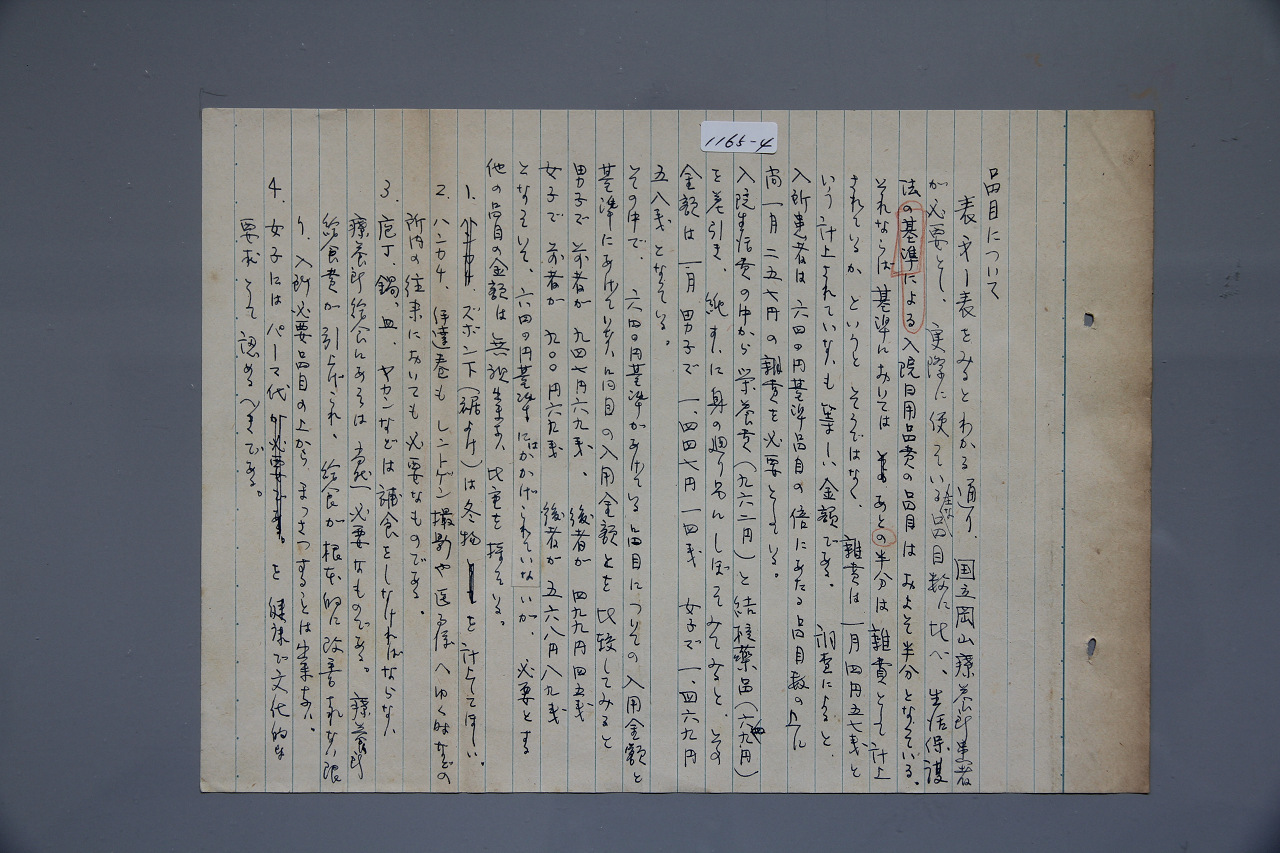 1165-4
品目について
表才一表をみるとわかる通り、国立岡山療養所患者
が必要とし、実際に使っている品目数に比べ、生活保護
法の基準による入院日用品費の品目はおよそ半分となっている。
それならば基準においては あとの半分は雑費として計上
されているか というと そうではなく、雑費は一月四円五七銭と
いう計上されていないも等しい金額である。調査によると、
入所患者は六四〇円基準品目の倍にあたる品目数の上に
尚一月二五七円の雑費を必要としている。
入院生活費の中から栄養費(九六二円)と結核薬品(六九円)
を差引き、純すいに身の廻り品にしぼってみてみると、その
金額は一月 男子で 一、四四七円一四銭 女子で一、四六九円
五八銭となっている。
その中で、六四〇円基準があげている品目についての入用金額と
基準にあげていない品目の入用金額とを比較してみると
男子で 前者が 九四七円六九銭、後者が 四九九円四五銭
女子で 前者が 九〇〇円六九銭 後者が 五六八円八九銭
となっていて、六四〇円基準にはかかげられていないが、必要とする
他の品目の金額は無視出来ない比重を持っている。
1. ズボン下(裾よけ)は冬物を計上してほしい。
2. ハンカチ、伊達巻も レントゲン撮影や医局へゆく時などの
所内の往来においても必要なものである。
3. 庖丁、鍋、皿、ヤカンなどは補食をしなければならない
療養所給食にあっては 当然必要なものである。療養所
給食費が引上げられ、給食が根本的に改善されない限
り、入所必要品目の上から まっさつすることは出来ない。
4. 女子にはパーマ代を 健康で文化的な
要求として認めるべきである。